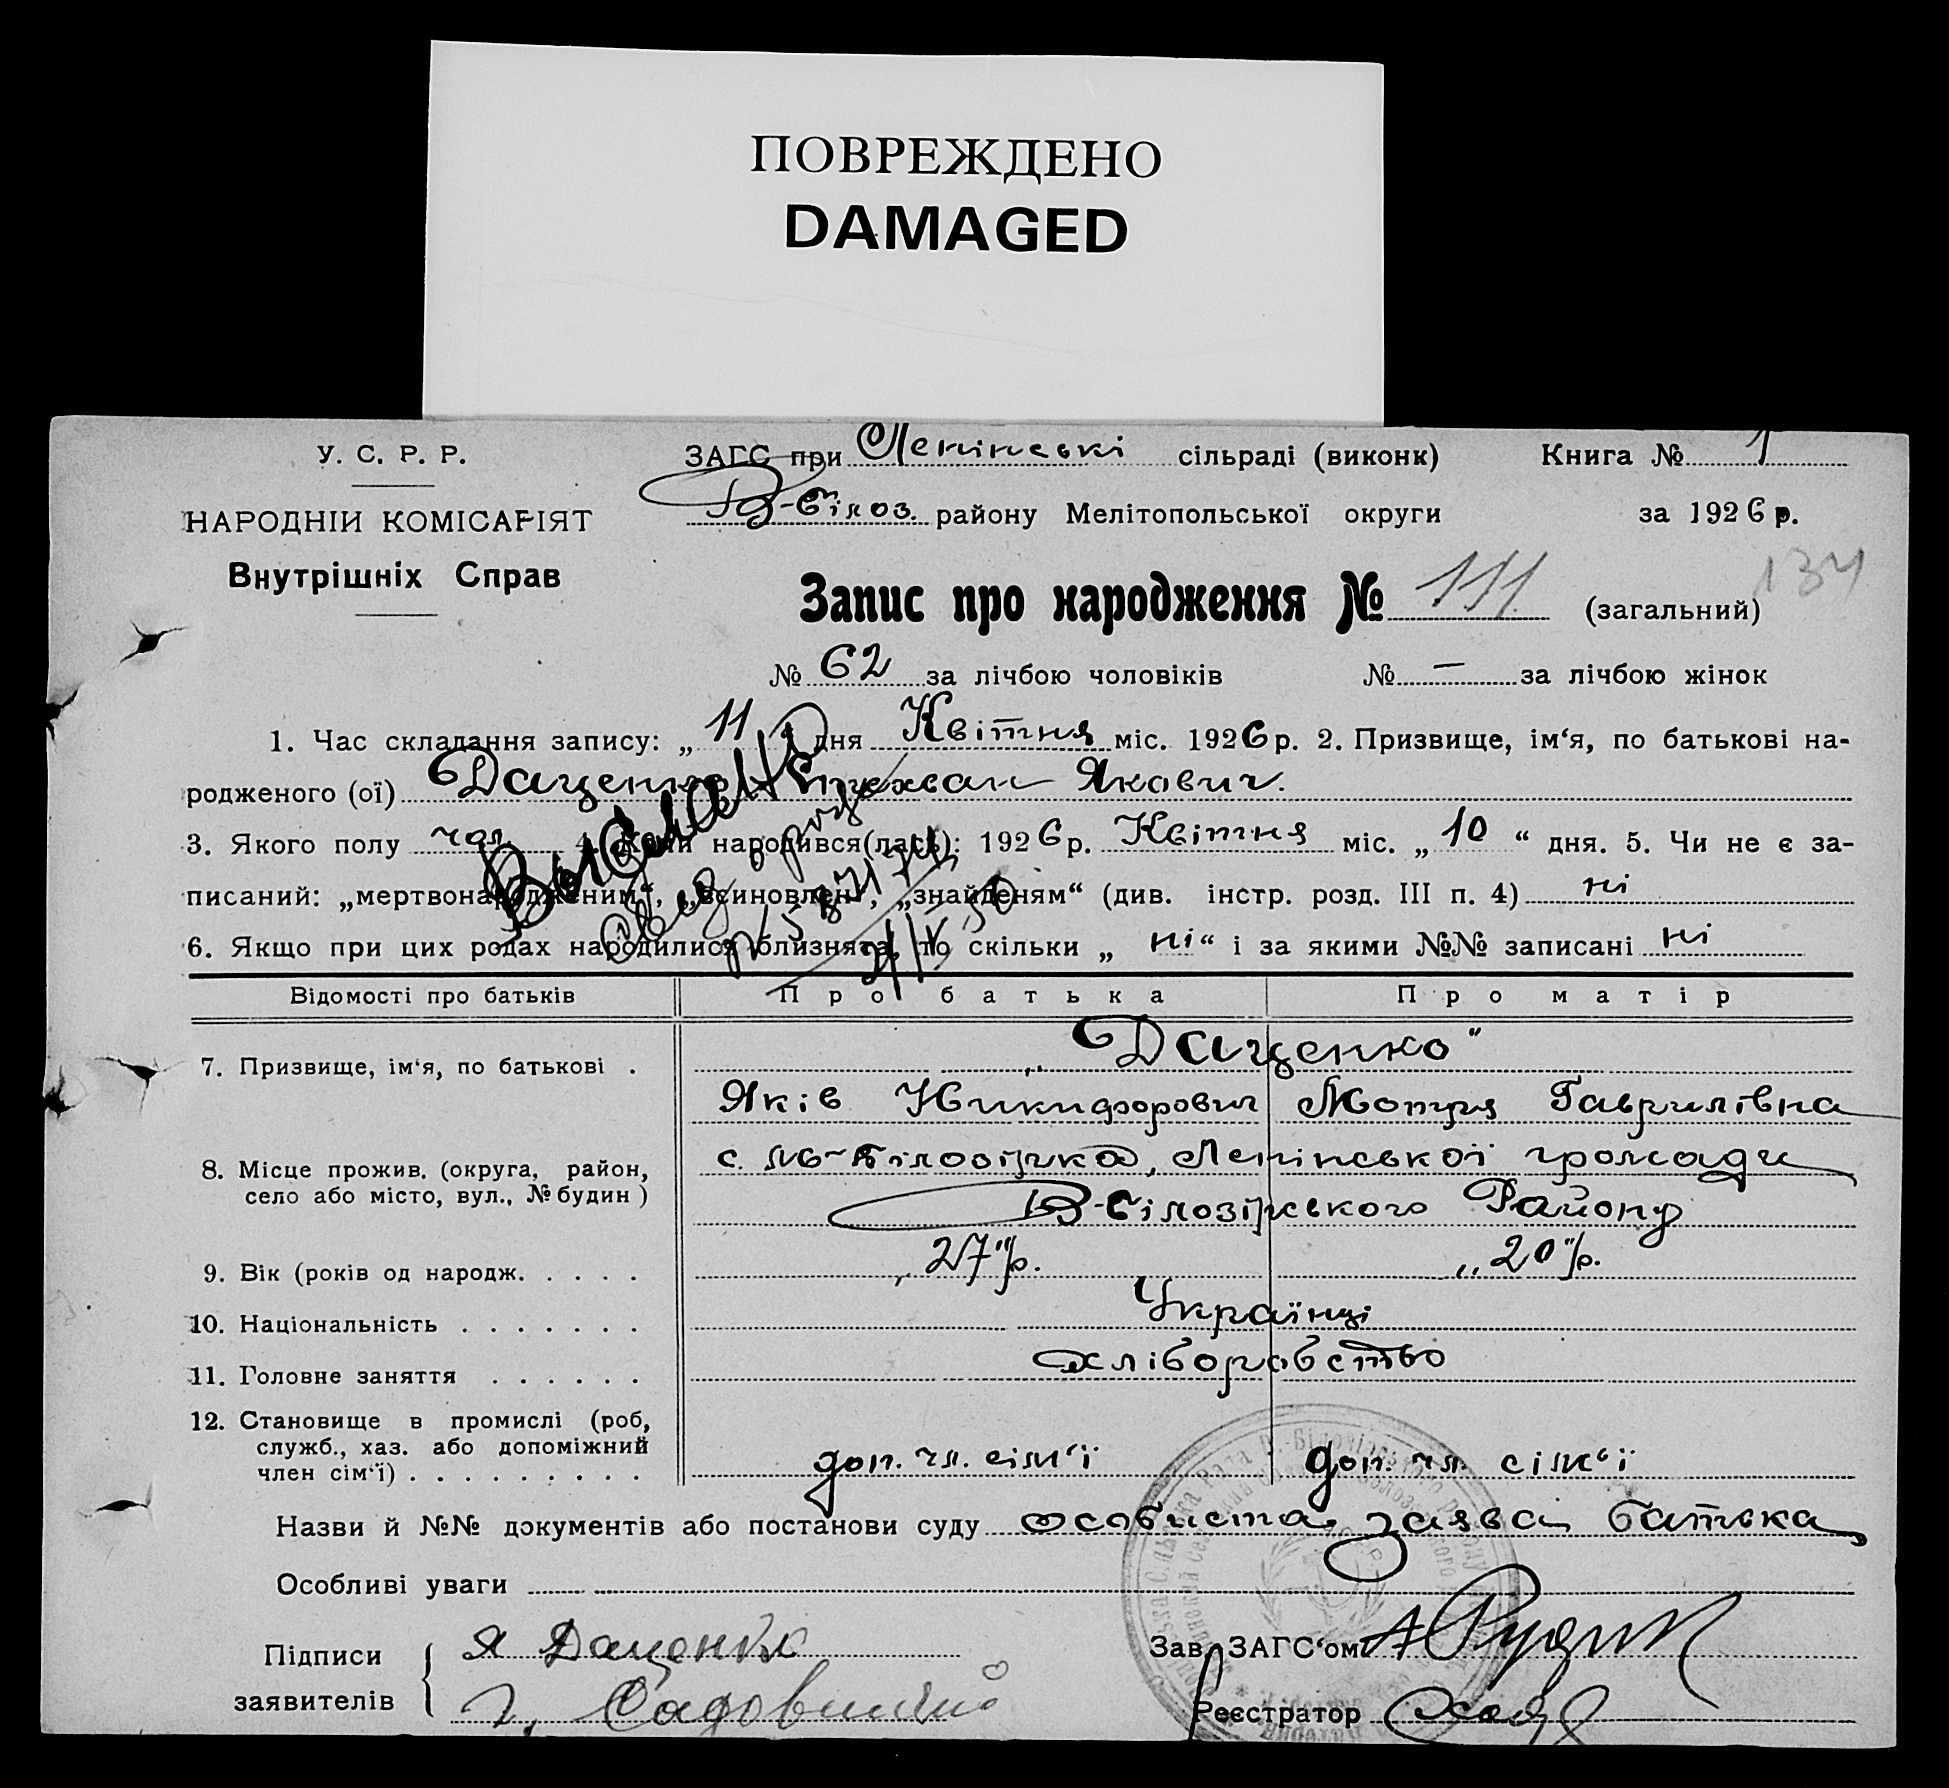 ПОВРЕЖДЕНО
DAMAGED
У. С. Р. Р.
НАРОДНІЙ КОМІСАРІЯТ
Внутрішніх Справ
ЗАГС при Ленінські сільраді (виконк) Книга № 1
В-Білоз. району Мелітопольської округи за 1926 р.
134
Запис про народження № 111 (загальний)
№ 62 за лічбою чоловіків № — за лічбою жінок
1. Час складання запису: „ 11 " дня Квітня міс. 1926 р. 2. Призвище, ім'я, по батькові на-
родженого (ої) Даценко Стехван Якович.
3. Якого полу чол. 4. Коли народився(лась): 1926 р. Квітня міс. „ 10 “ дня. 5. Чи не є за-
писаний: „мертвонародженим“, „всиновлен“, „знайденям“ (див. інстр. розд. III п. 4) ні
6. Якщо при цих родах народилися близнята, то скільки „ ні “ і за якими №№ записані ні
Відомості про батьків Про батька Про матір
7. Призвище, ім'я, по батькові . „Даценко"
Яків Никифорович Мотря Гаврилівна
8. Місце прожив. (округа, район, село або місто, вул., № будин) с. М-Білозірка, Ленінської громади
В-Білозірського Району
9. Вік (років од народж. . . . . „27" р. „20" р.
10. Національність . . . . . . . Українці
11. Головне заняття . . . . . . хліборобство
12. Становище в промислі (роб, служб., хаз. або допоміжний член сім'ї) . . . . . . . . . доп. чл. сім'ї доп. чл. сім'ї
Назви й №№ документів або постанови суду особиста заява батька
Особливі уваги
Підписи заявителів Я Даценко
Г. Садовничий
Зав. ЗАГС'ом А Рудик
Реєстратор